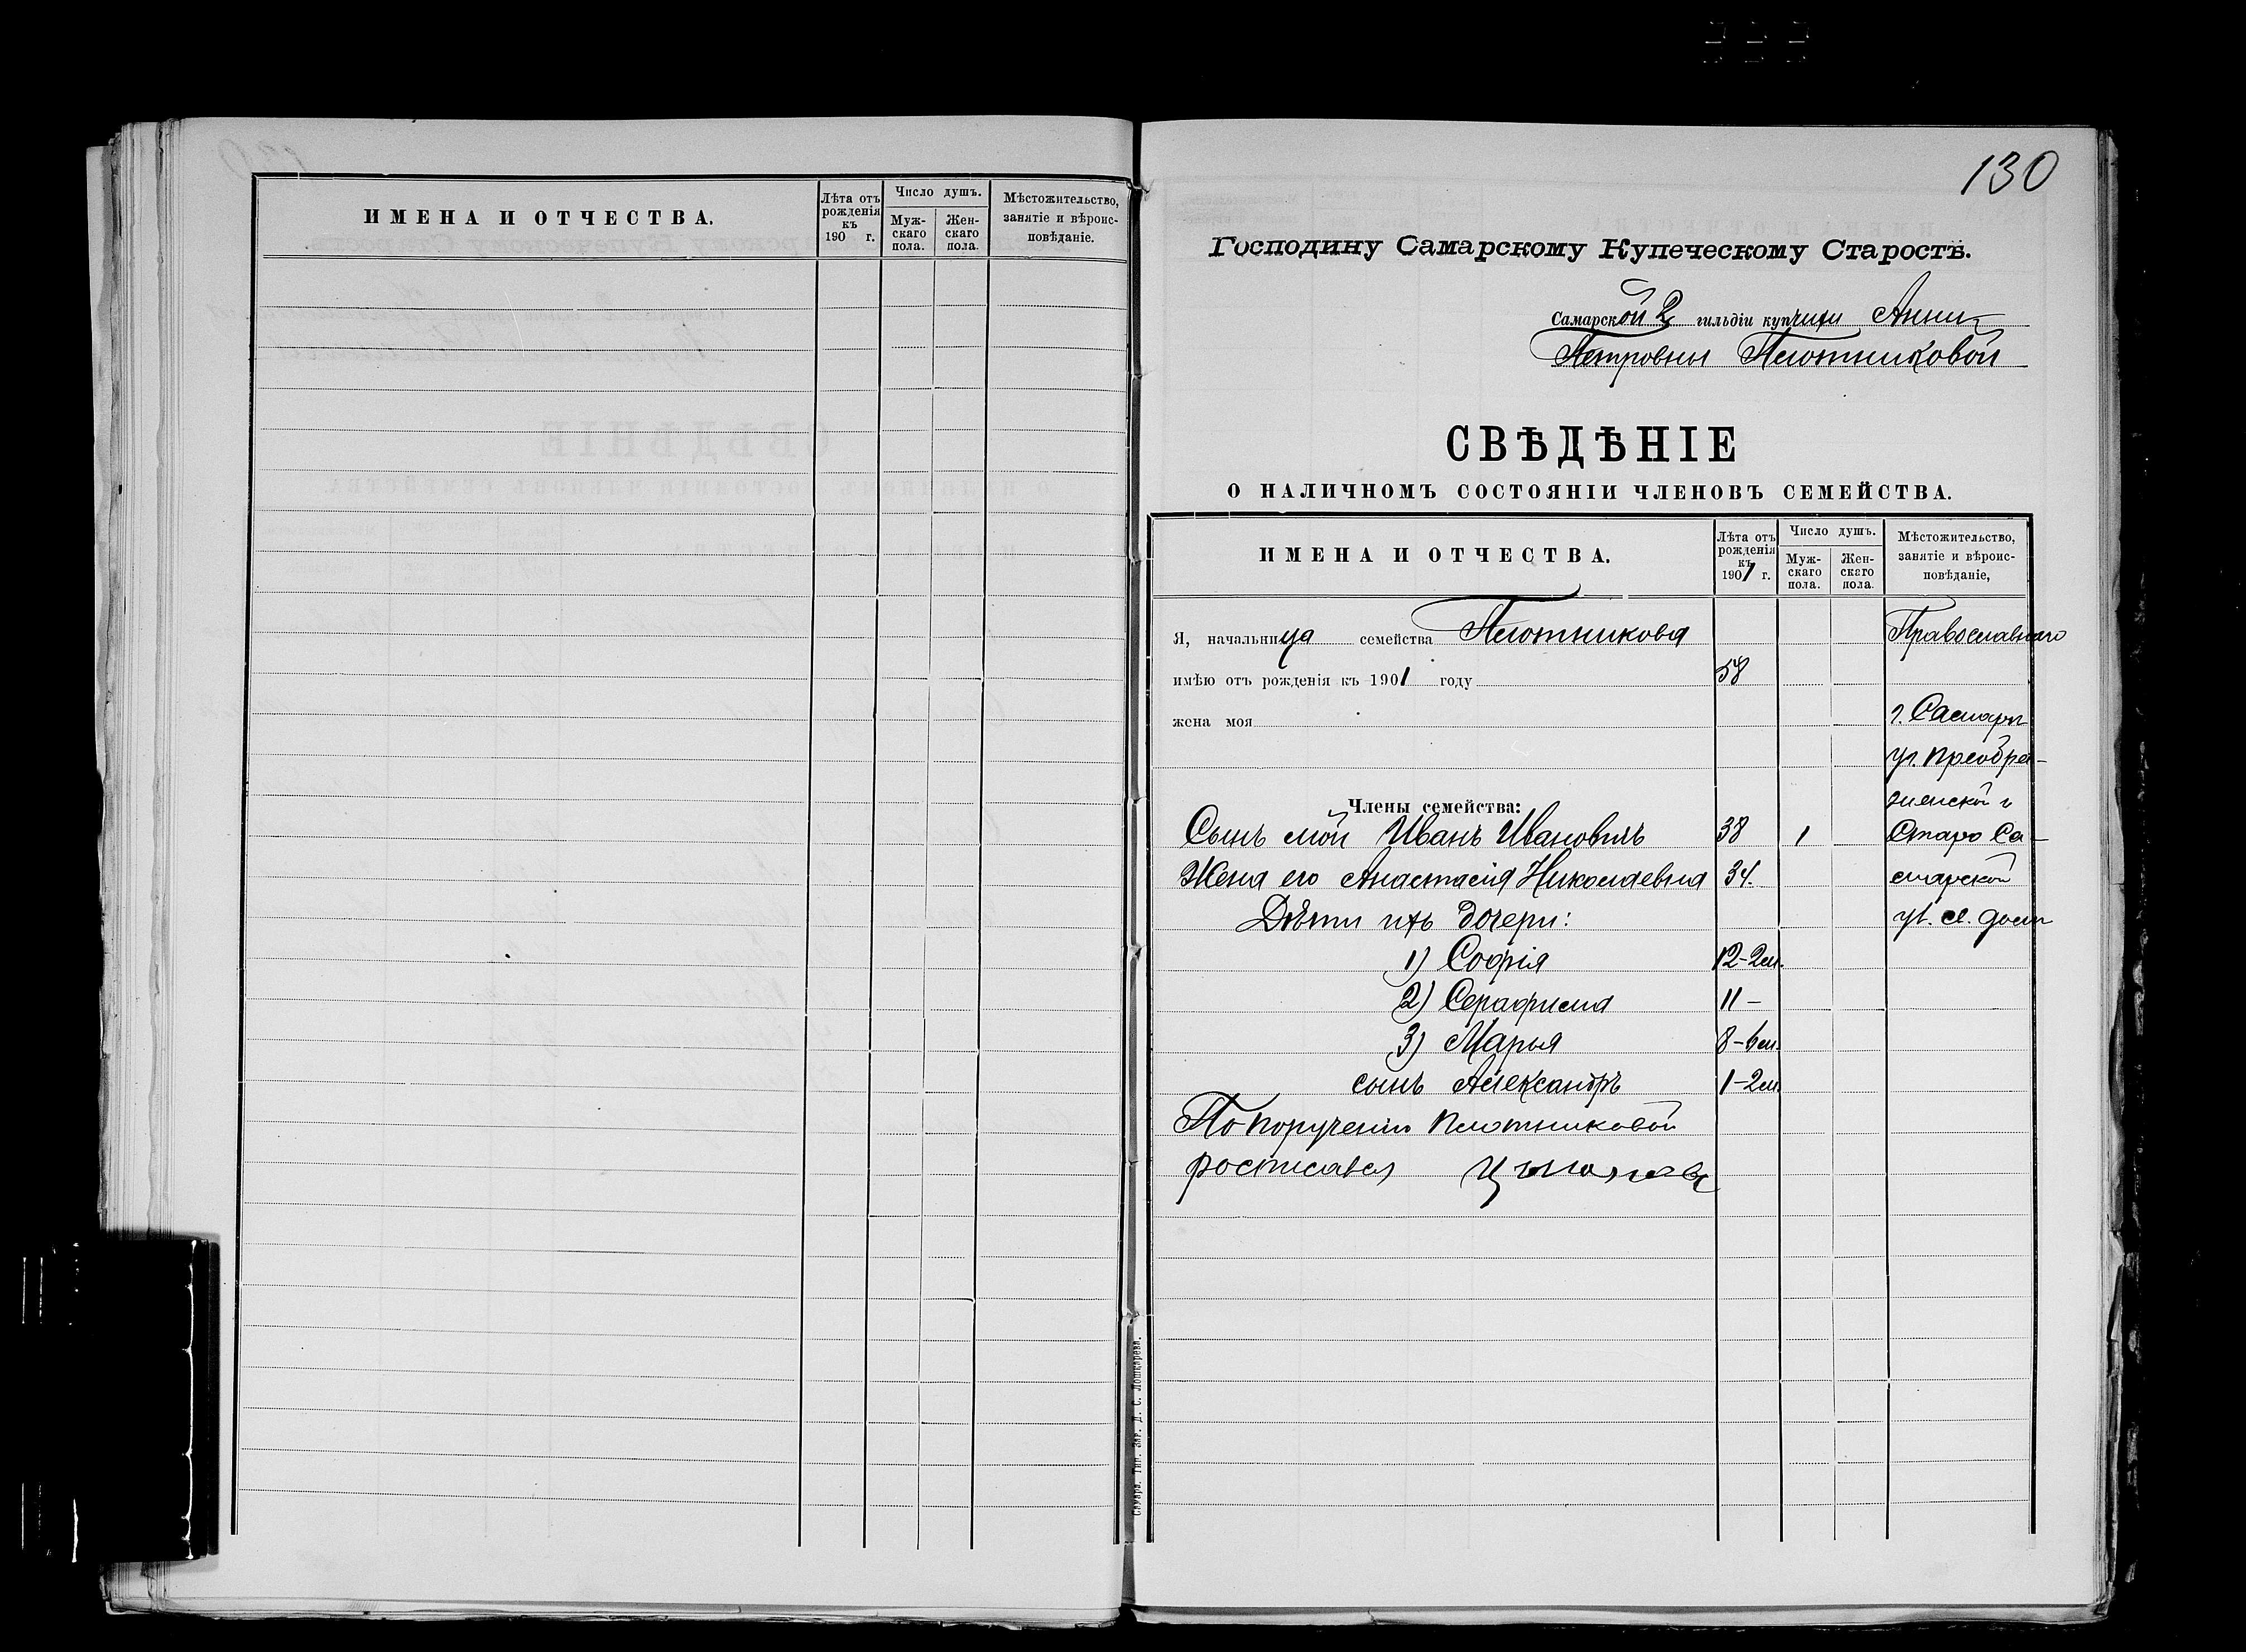 ИМЕНА И ОТЧЕСТВА.
Лѣта отъ рожденія къ 190 г.
Число душъ.
Мужскаго пола.
Женскаго пола.
Мѣстожительство, занятіе и вѣроисповѣданіе.
130
Господину Самарскому Купеческому Старостѣ.
Самарской 2 гильдіи купчихи Анны
Петровны Плотниковой
СВѢДѢНІЕ
О НАЛИЧНОМЪ СОСТОЯНІИ ЧЛЕНОВЪ СЕМЕЙСТВА.
ИМЕНА И ОТЧЕСТВА.
Лѣта отъ рожденія къ 1901 г.
Число душъ.
Мужскаго пола.
Женскаго пола.
Мѣстожительство, занятіе и вѣроисповѣданіе,
Я, начальница семейства Плотникова Православнаго
имѣю отъ рожденія къ 1901 году 58
жена моя г. Самары
уг. Преобра-
женской и
Члены семейства:
Сынъ мой Иванъ Ивановичъ 38 1 Старо Са-
Жена его Анастасія Николаевна 34. марской
Дѣти ихъ дочери: ул. с. домъ
1) Софія 12-2м.
2) Серафима 11 -
3) Марья 8-6м.
сынъ Александръ 1-2м.
По порученію Плотниковой
росписался
Самара. Тип. Зар. Д. С. Лошкарева.